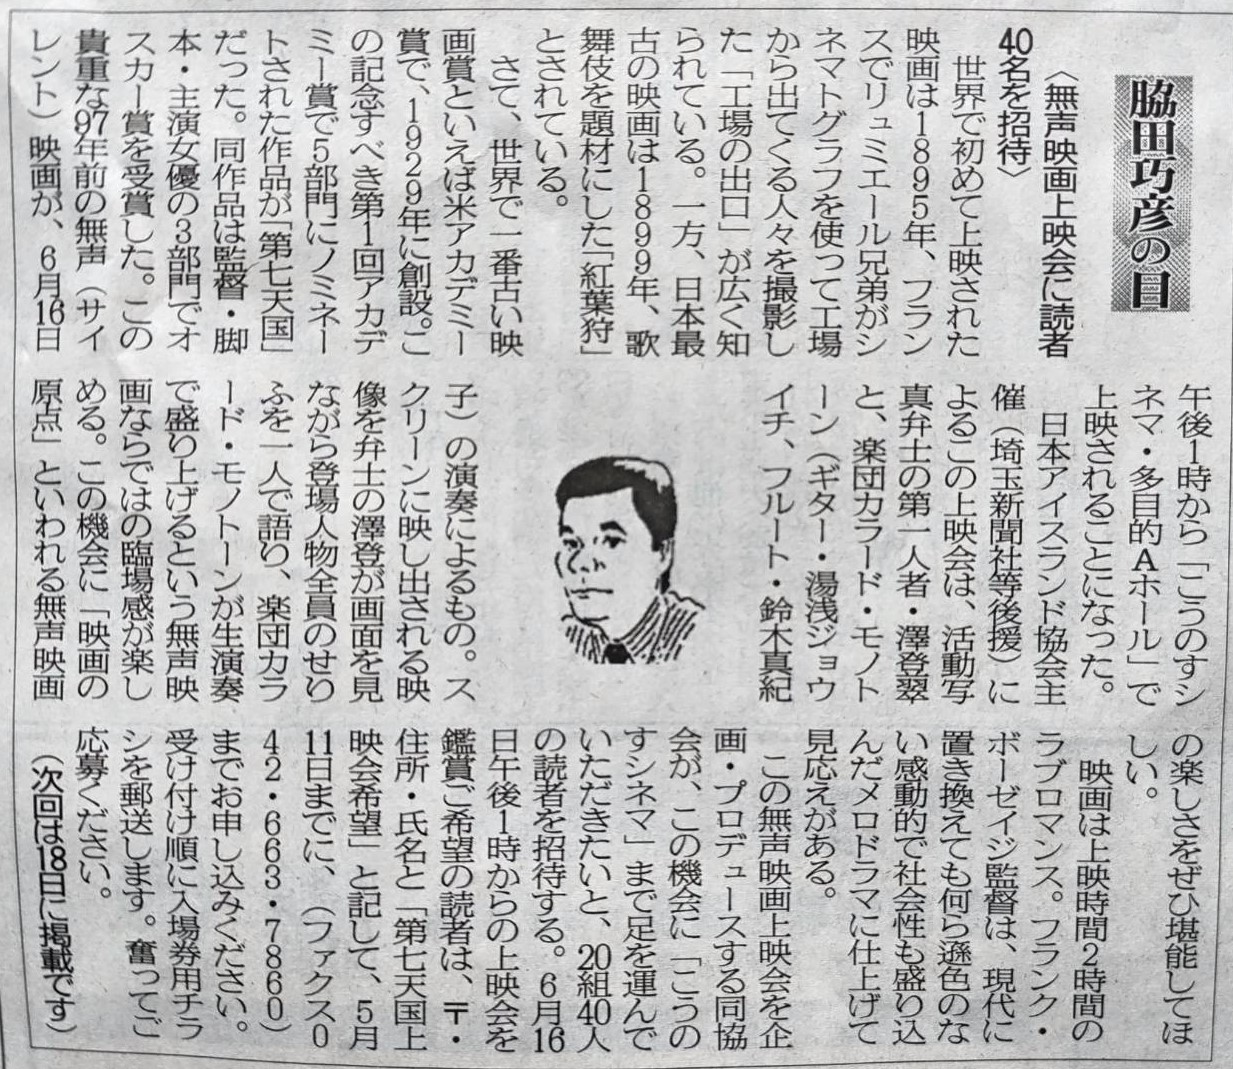 脇田巧彦の目
〈無声映画上映会に読者
40名を招待〉
世界で初めて上映された
映画は1895年、フラン
スでリュミエール兄弟がシ
ネマトグラフを使って工場
から出てくる人々を撮影し
た「工場の出口」が広く知
られている。一方、日本最
古の映画は1899年、歌
舞伎を題材にした「紅葉狩」
とされている。
さて、世界で一番古い映
画賞といえば米アカデミー
賞で、1929年に創設。こ
の記念すべき第1回アカデ
ミー賞で5部門にノミネー
トされた作品が「第七天国」
だった。同作品は監督・脚
本・主演女優の3部門でオ
スカー賞を受賞した。この
貴重な97年前の無声（サイ
レント）映画が、6月16日
午後1時から「こうのすシ
ネマ・多目的Aホール」で
上映されることになった。
日本アイスランド協会主
催（埼玉新聞社等後援）に
よるこの上映会は、活動写
真弁士の第一人者・澤登翠
と、楽団カラード・モノト
ーン（ギター・湯浅ジョウ
イチ、フルート・鈴木真紀
子）の演奏によるもの。ス
クリーンに映し出される映
像を弁士の澤登が画面を見
ながら登場人物全員のせり
ふを一人で語り、楽団カラ
ード・モノトーンが生演奏
で盛り上げるという無声映
画ならではの臨場感が楽し
める。この機会に「映画の
原点」といわれる無声映画
の楽しさをぜひ堪能してほ
しい。
映画は上映時間2時間の
ラブロマンス。フランク・
ボーゼイジ監督は、現代に
置き換えても何ら遜色のな
い感動的で社会性も盛り込
んだメロドラマに仕上げて
見応えがある。
この無声映画上映会を企
画・プロデュースする同協
会が、この機会に「こうの
すシネマ」まで足を運んで
いただきたいと、20組40人
の読者を招待する。6月16
日午後1時からの上映会を
鑑賞ご希望の読者は、〒・
住所・氏名と「第七天国上
映会希望」と記して、5月
11日までに、（ファクス0
42・663・7860）
までお申し込みください。
受け付け順に入場券用チラ
シを郵送します。奮ってご
応募ください。
（次回は18日に掲載です）